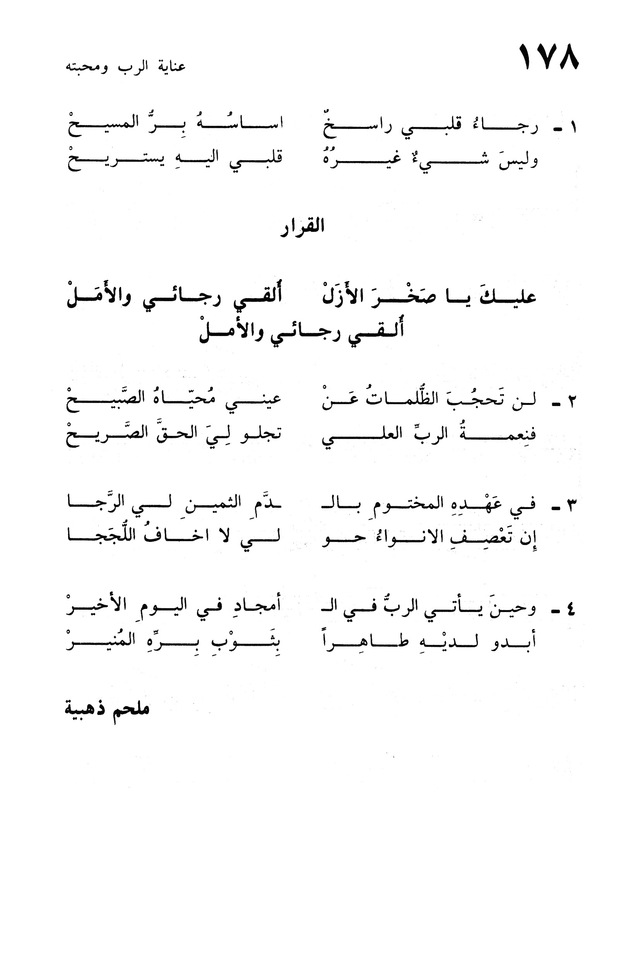 ١٧٨
عناية الرب ومحبته
١ - رجاءُ قلبي راسخٌ اساسُهُ بِرُّ المسيحْ
وليسَ شيءٌ غيرُهُ قلبي اليهِ يستريحْ
القرار
عليكَ يا صَخْرَ الأزَلْ أُلقي رجائي والأمَلْ
أُلقي رجائي والأملْ
٢ - لن تَحجُبَ الظُّلماتُ عَنْ عيني مُحيّاهُ الصَّبيحْ
فنِعمةُ الربِّ العلي تجلو لِيَ الحقَّ الصَّريحْ
٣ - في عَهْدِهِ المختومِ بالـ ـدَّمِ الثمينِ لي الرَّجا
إن تَعْصِفِ الانواءُ حو لي لا اخافُ اللُّجَجا
٤ - وحينَ يأتي الربُّ في الـ أمجادِ في اليومِ الأخيرْ
أبدو لديْهِ طاهِراً بِثَوْبِ بِرِّهِ المُنيرْ
ملحم ذهبية